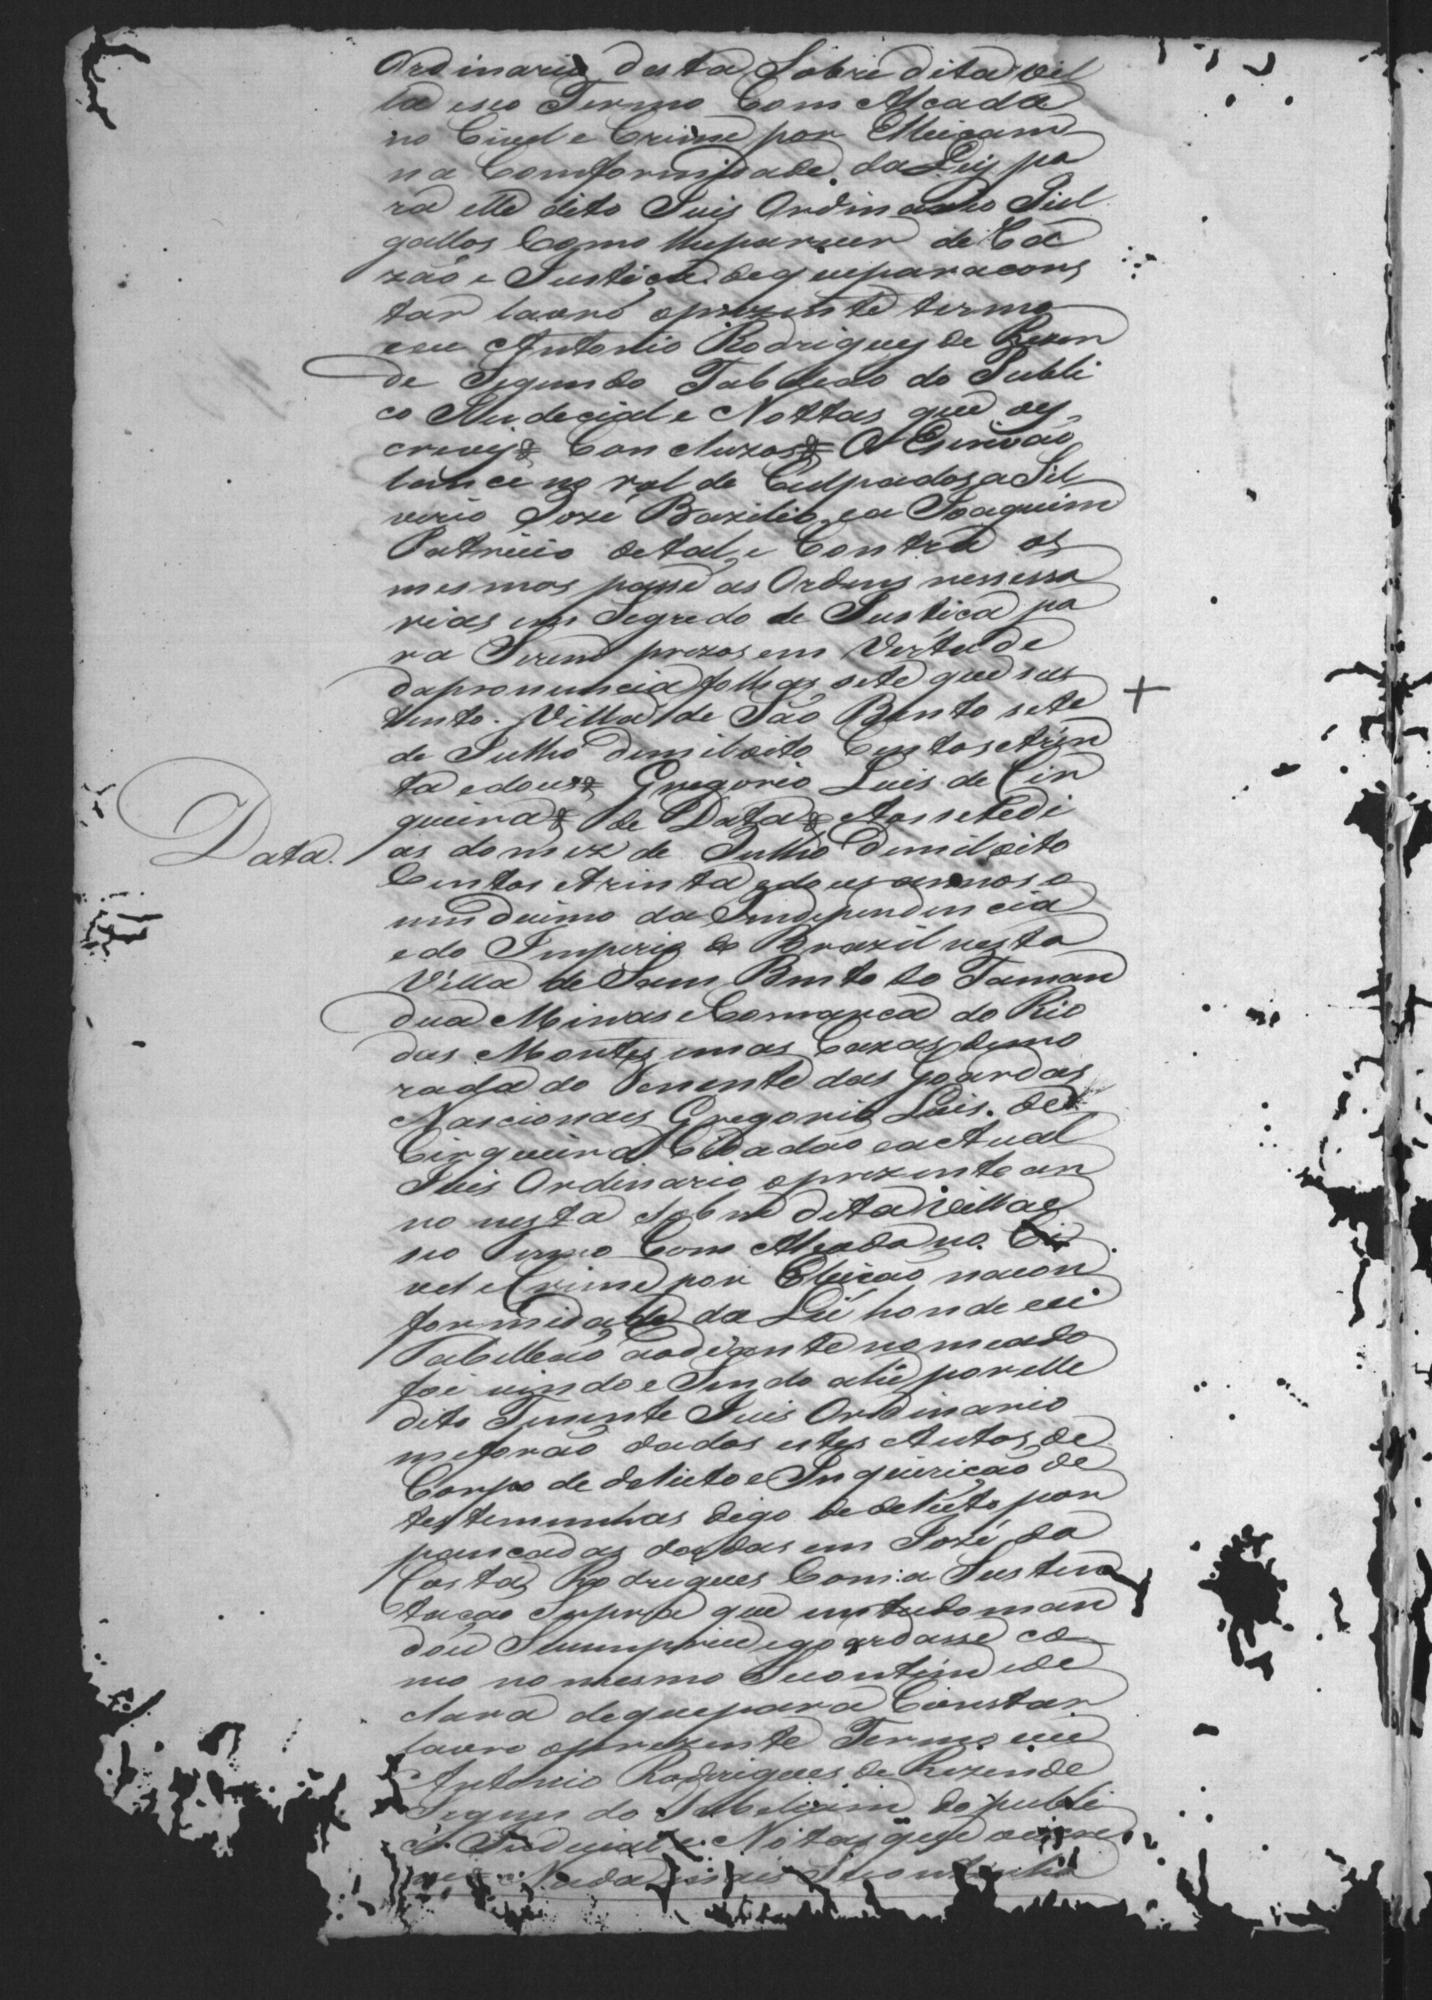 Ordinario desta Sobre dita vil
la eseo Termo Com Alcada
no Civel e Crime por Eleicam
na Comformidade da Ley pa
ra elle dito Juis Ordinario Jul
gallos Como lheparecer de Ra
zão e Justiça dequeparacons
tar lavro oprezente termo
eeu Antonio Rodrigues de Rezen
de Segundo Tabeleao do Publi
co Judecial e Nottas que oes
crevy Concluzos O Escrivão
lance no rol de Culpados a Sil
verio Jozé Bazilio, ea Joaquim
Patricio detal, e Contra os
mesmos passe as Ordens nessessa
rias em Segredo de Justica pa
ra Serem prezos em Vertude
dapronuncia folhas sete que sus
tento. Villa de São Bento sete
de Julho demiloito Centosetrin
ta edous Gregorio Luis de Cir
queira de Data Aos setedi
Data.
as domez de Julho demiloito
Centos etrinta edous annos o
undecimo da Independencia
edo Imperio do Brazil nesta
Villa de Sam Bento do Taman
dua Minas e Comarca do Rio
das Mortes emas Cazas demo
rada do Tenente das Goardas
Nascionaes Gregorio Luis de
Cirqueira Cidadão eactual
Juis Ordinario oprezente an
no nesta Sobre dita Villae
seo Termo Com Alcada no Ci
vel e Crime por Eleicão nacon
formidade da Lei honde eu
Tabelleao aodiante nomeado
foi vindo e Sendo ahi por elle
dito Tenente Juis Ordinario
meforão dados estes Autos de
Corpo de delicto e Inquirição de
testemunhas digo de delicto por
pancadas dadas em Jozé da
Costa Rodrigues Com a Susten
tacao Supra que emtudo man
dou Secumprice egoardasse co
mo no mesmo Secontem ede
clara dequepara Constar
lavro oprezente Termo eeu
Antonio Rodrigues de Rezende
Segun do Tabeliam do publi
co Judicial e Notas que oescre
vy Nada mais Secontinha